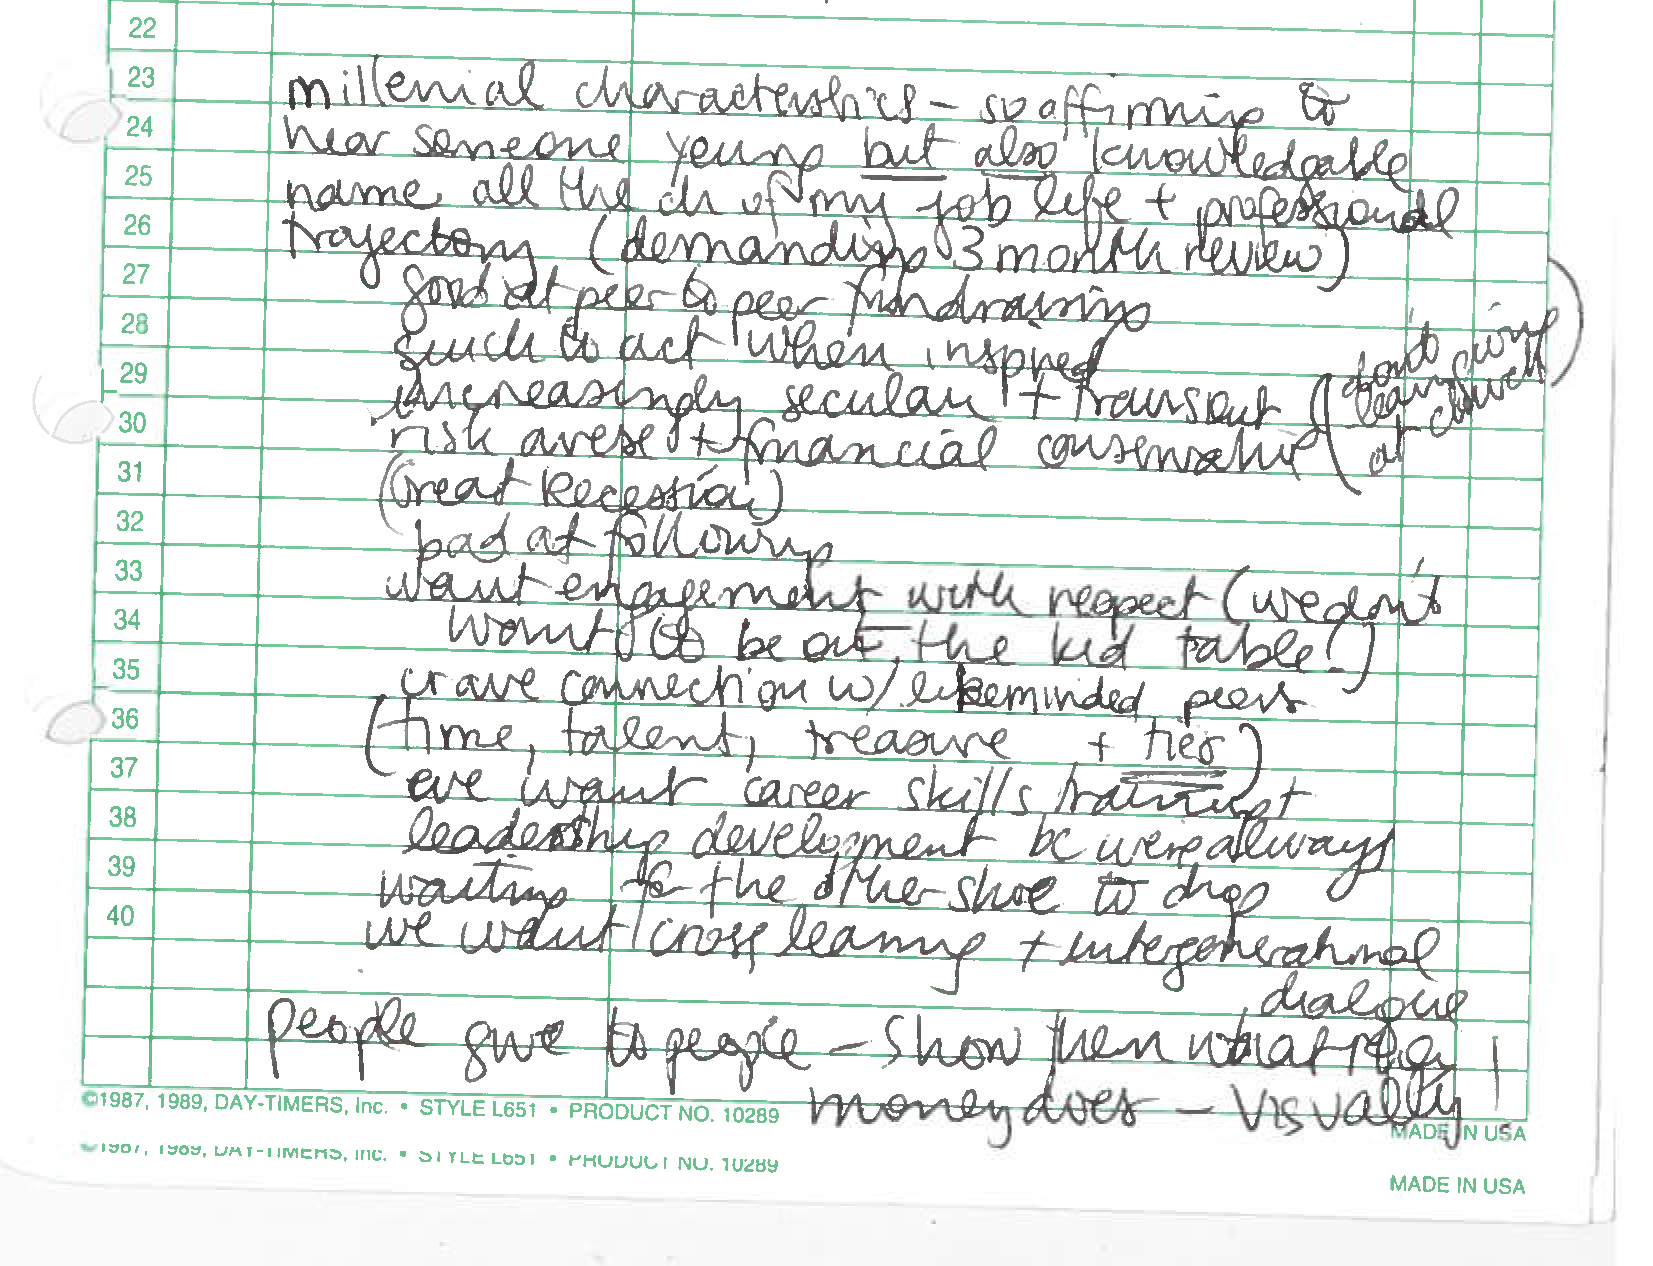 22
23
millenial characteristics – so affirming to
24
hear someone young but also knowledgable
25
name all the ch of my job life + professional
26
trajectory (demanding 3 month review)
27
good at peer to peer fundraising
28
quick to act when inspired
29
increasingly secular + transient (dont
learn giving
at church)
30
risk averse + financial conservative
31
(Great Recession)
32
bad at following
33
want engagement with respect (we don't
34
want to be at the kid table!)
35
crave connection w/ likeminded peers
36
(time, talent, treasure + ties)
37
we want career skills training +
38
leadership development bc we're always
39
waiting for the other shoe to drop
40
we want cross learning + intergenerational
dialogue
people give to people – show them what they
money does – visually!
©1987, 1989, DAY-TIMERS, Inc. • STYLE L651 • PRODUCT NO. 10289
MADE IN USA
©1987, 1989, DAY-TIMERS, Inc. • STYLE L651 • PRODUCT NO. 10289
MADE IN USA